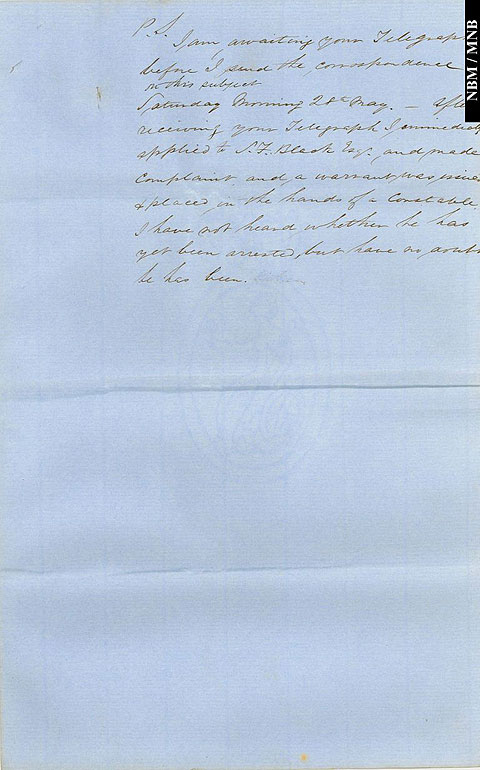 P.S.
I am awaiting your Telegraph
before I send the correspondence
on this subject
Saturday Morning 28th May. — Afte
receiving your Telegraph I immediat
applied to S. Z. Black Esq. and made
Complaint and a warrant was issue
& placed in the hands of a Constable
I have not heard whether he has
yet been arrested, but have no doubt
he has been.
NBM / MNB